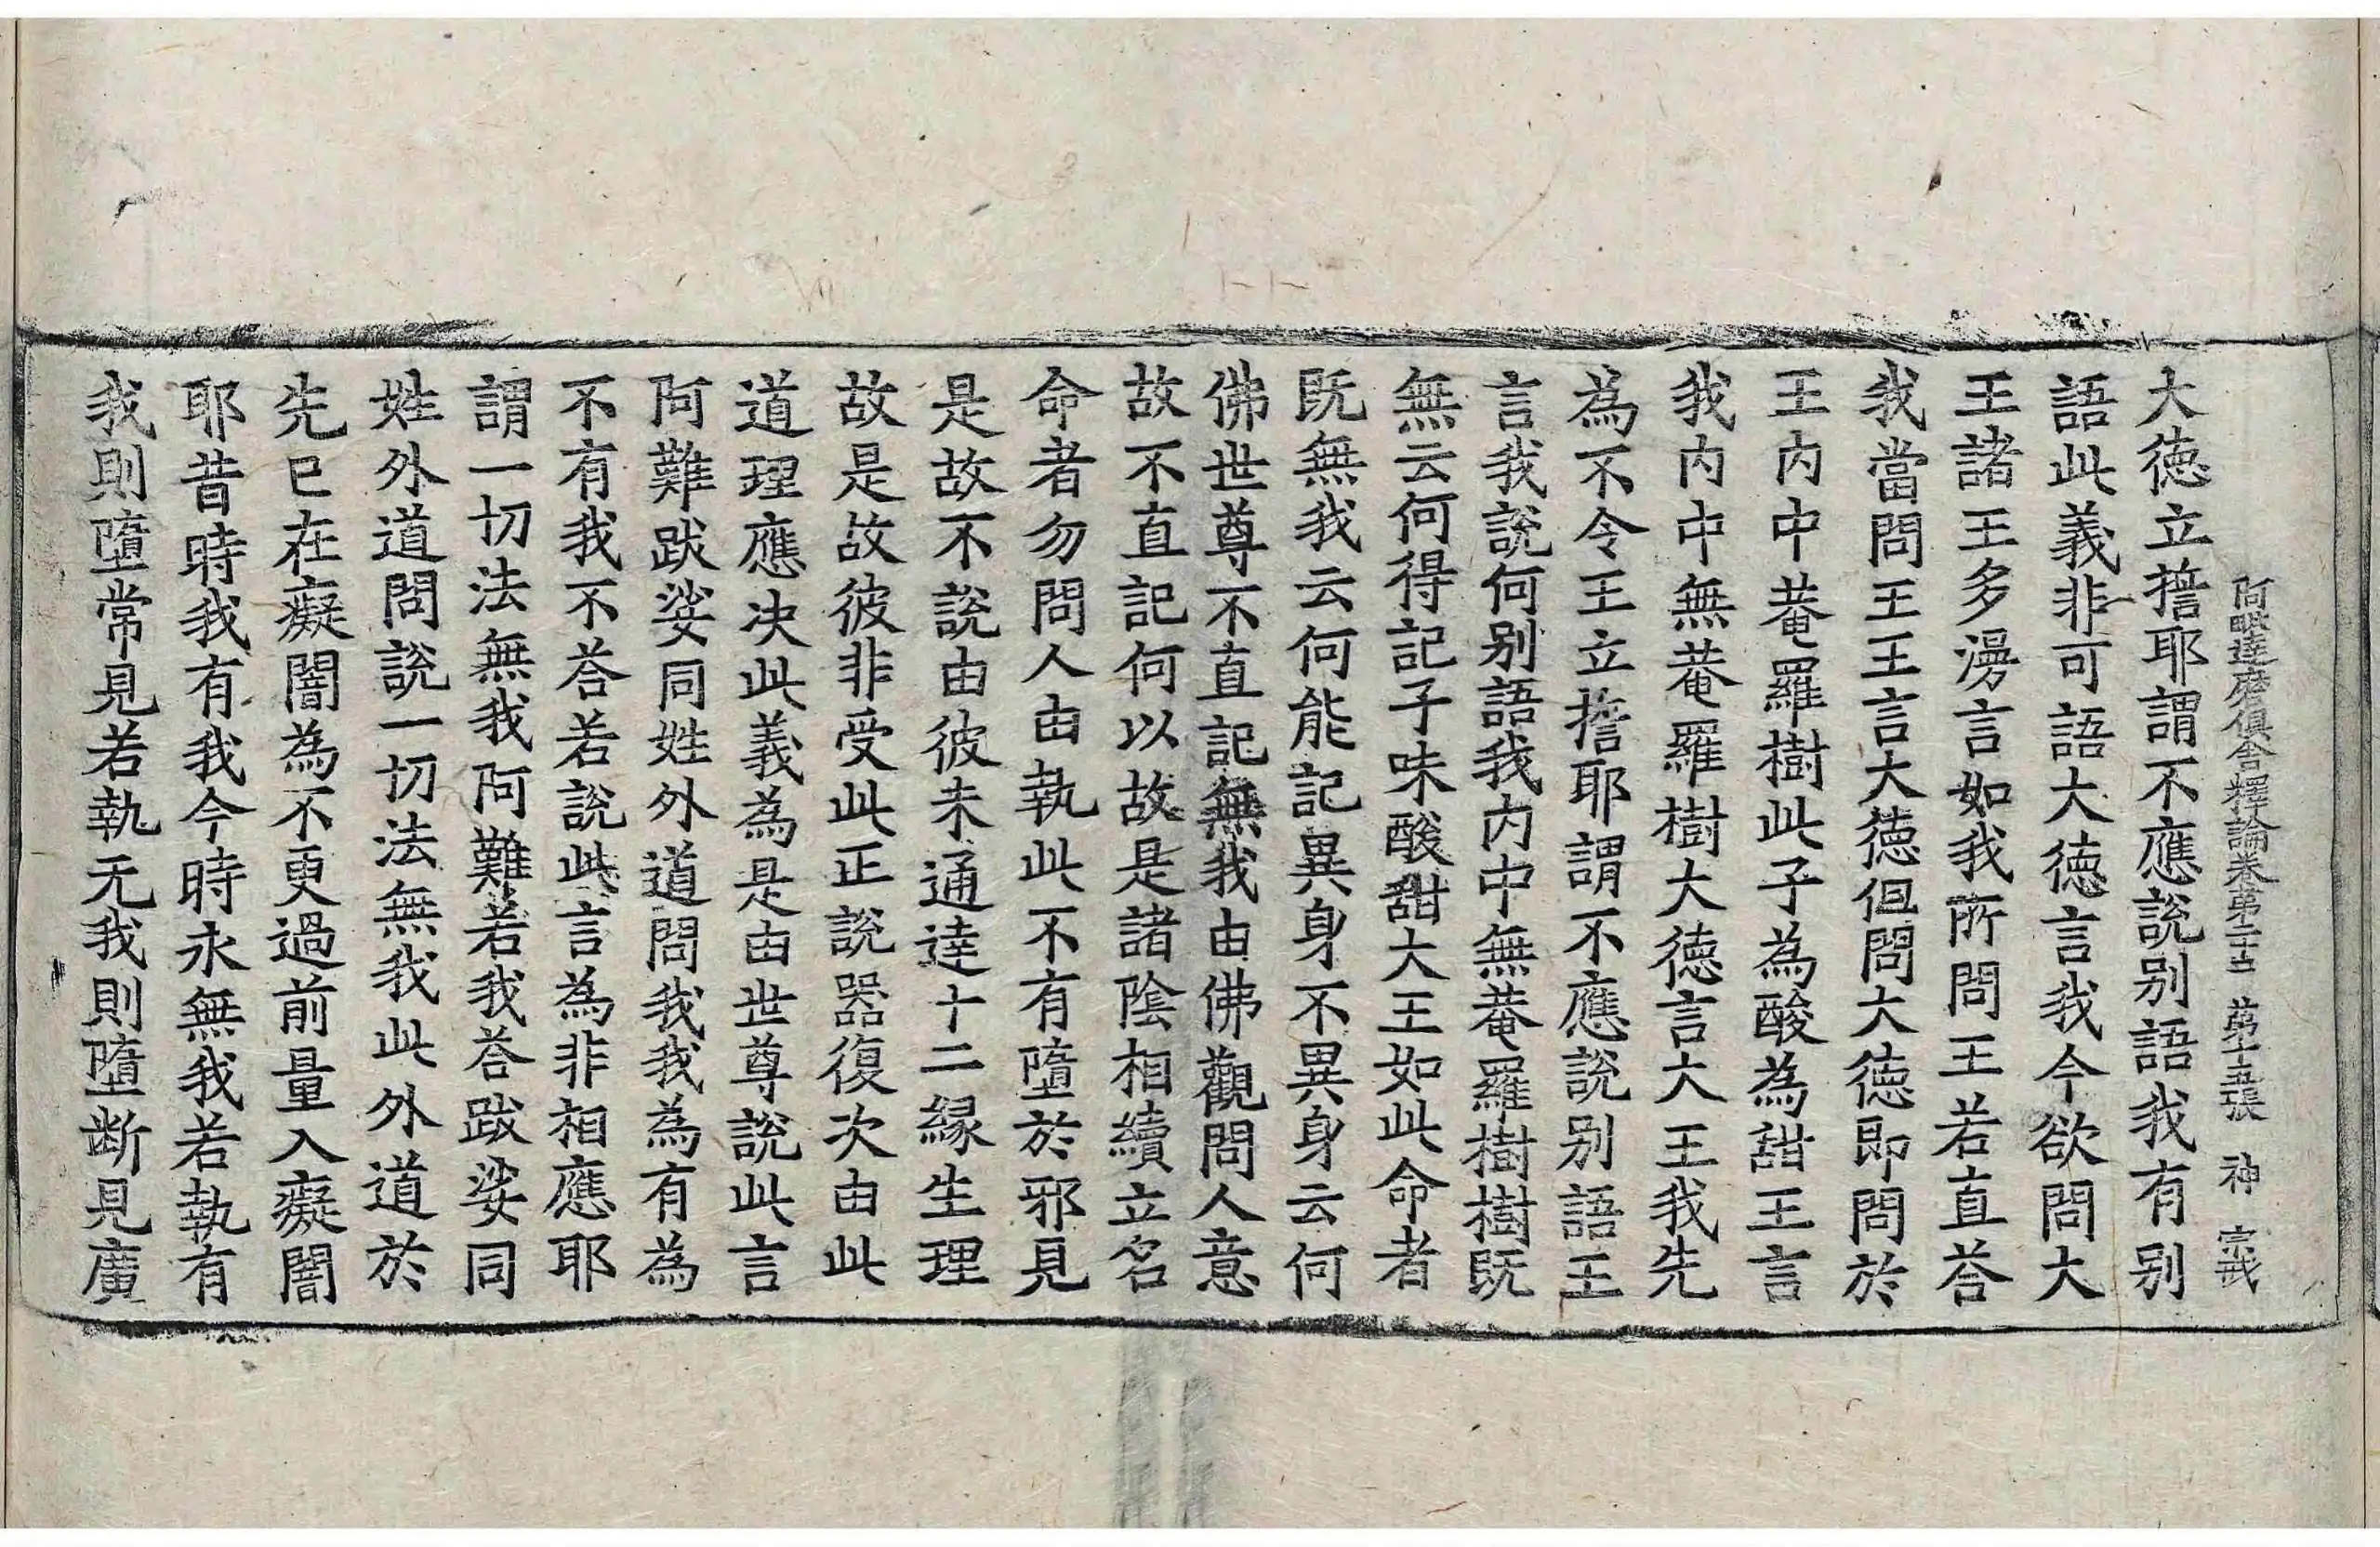 阿毗達磨俱舍釋論卷第二十二 第十五張 神 宣戒
大德立擔耶謂不應說別語我有別
語此義非可語大德言我今欲問大
王諸王多漫言如我所問王若直荅
我當問王王言大德但問大德即問於
王內中菴羅樹此子為酸為甜王言
我內中無菴羅樹大德言大王我先
為不令王立擔耶謂不應說別語王
言我說何別語我內中無菴羅樹樹既
無云何得記子味酸甜大王如此命者
既無我云何能記異身不異身云何
佛世尊不直記無我由佛觀問人意
故不直記何以故是諸陰相續立名
命者勿問人由執此不有墮於邪見
是故不說由彼未通達十二緣生理
故是故彼非受此正說器復次由此
道理應决此義為是由世尊說此言
阿難跋娑同姓外道問我我為有為
不有我不荅若說此言為非相應耶
謂一切法無我阿難若我荅跋娑同
姓外道問說一切法無我此外道於
先已在癡闇為不更過前量入癡闇
耶昔時我有我今時永無我若執有
我則墮常見若執无我則墮断見廣